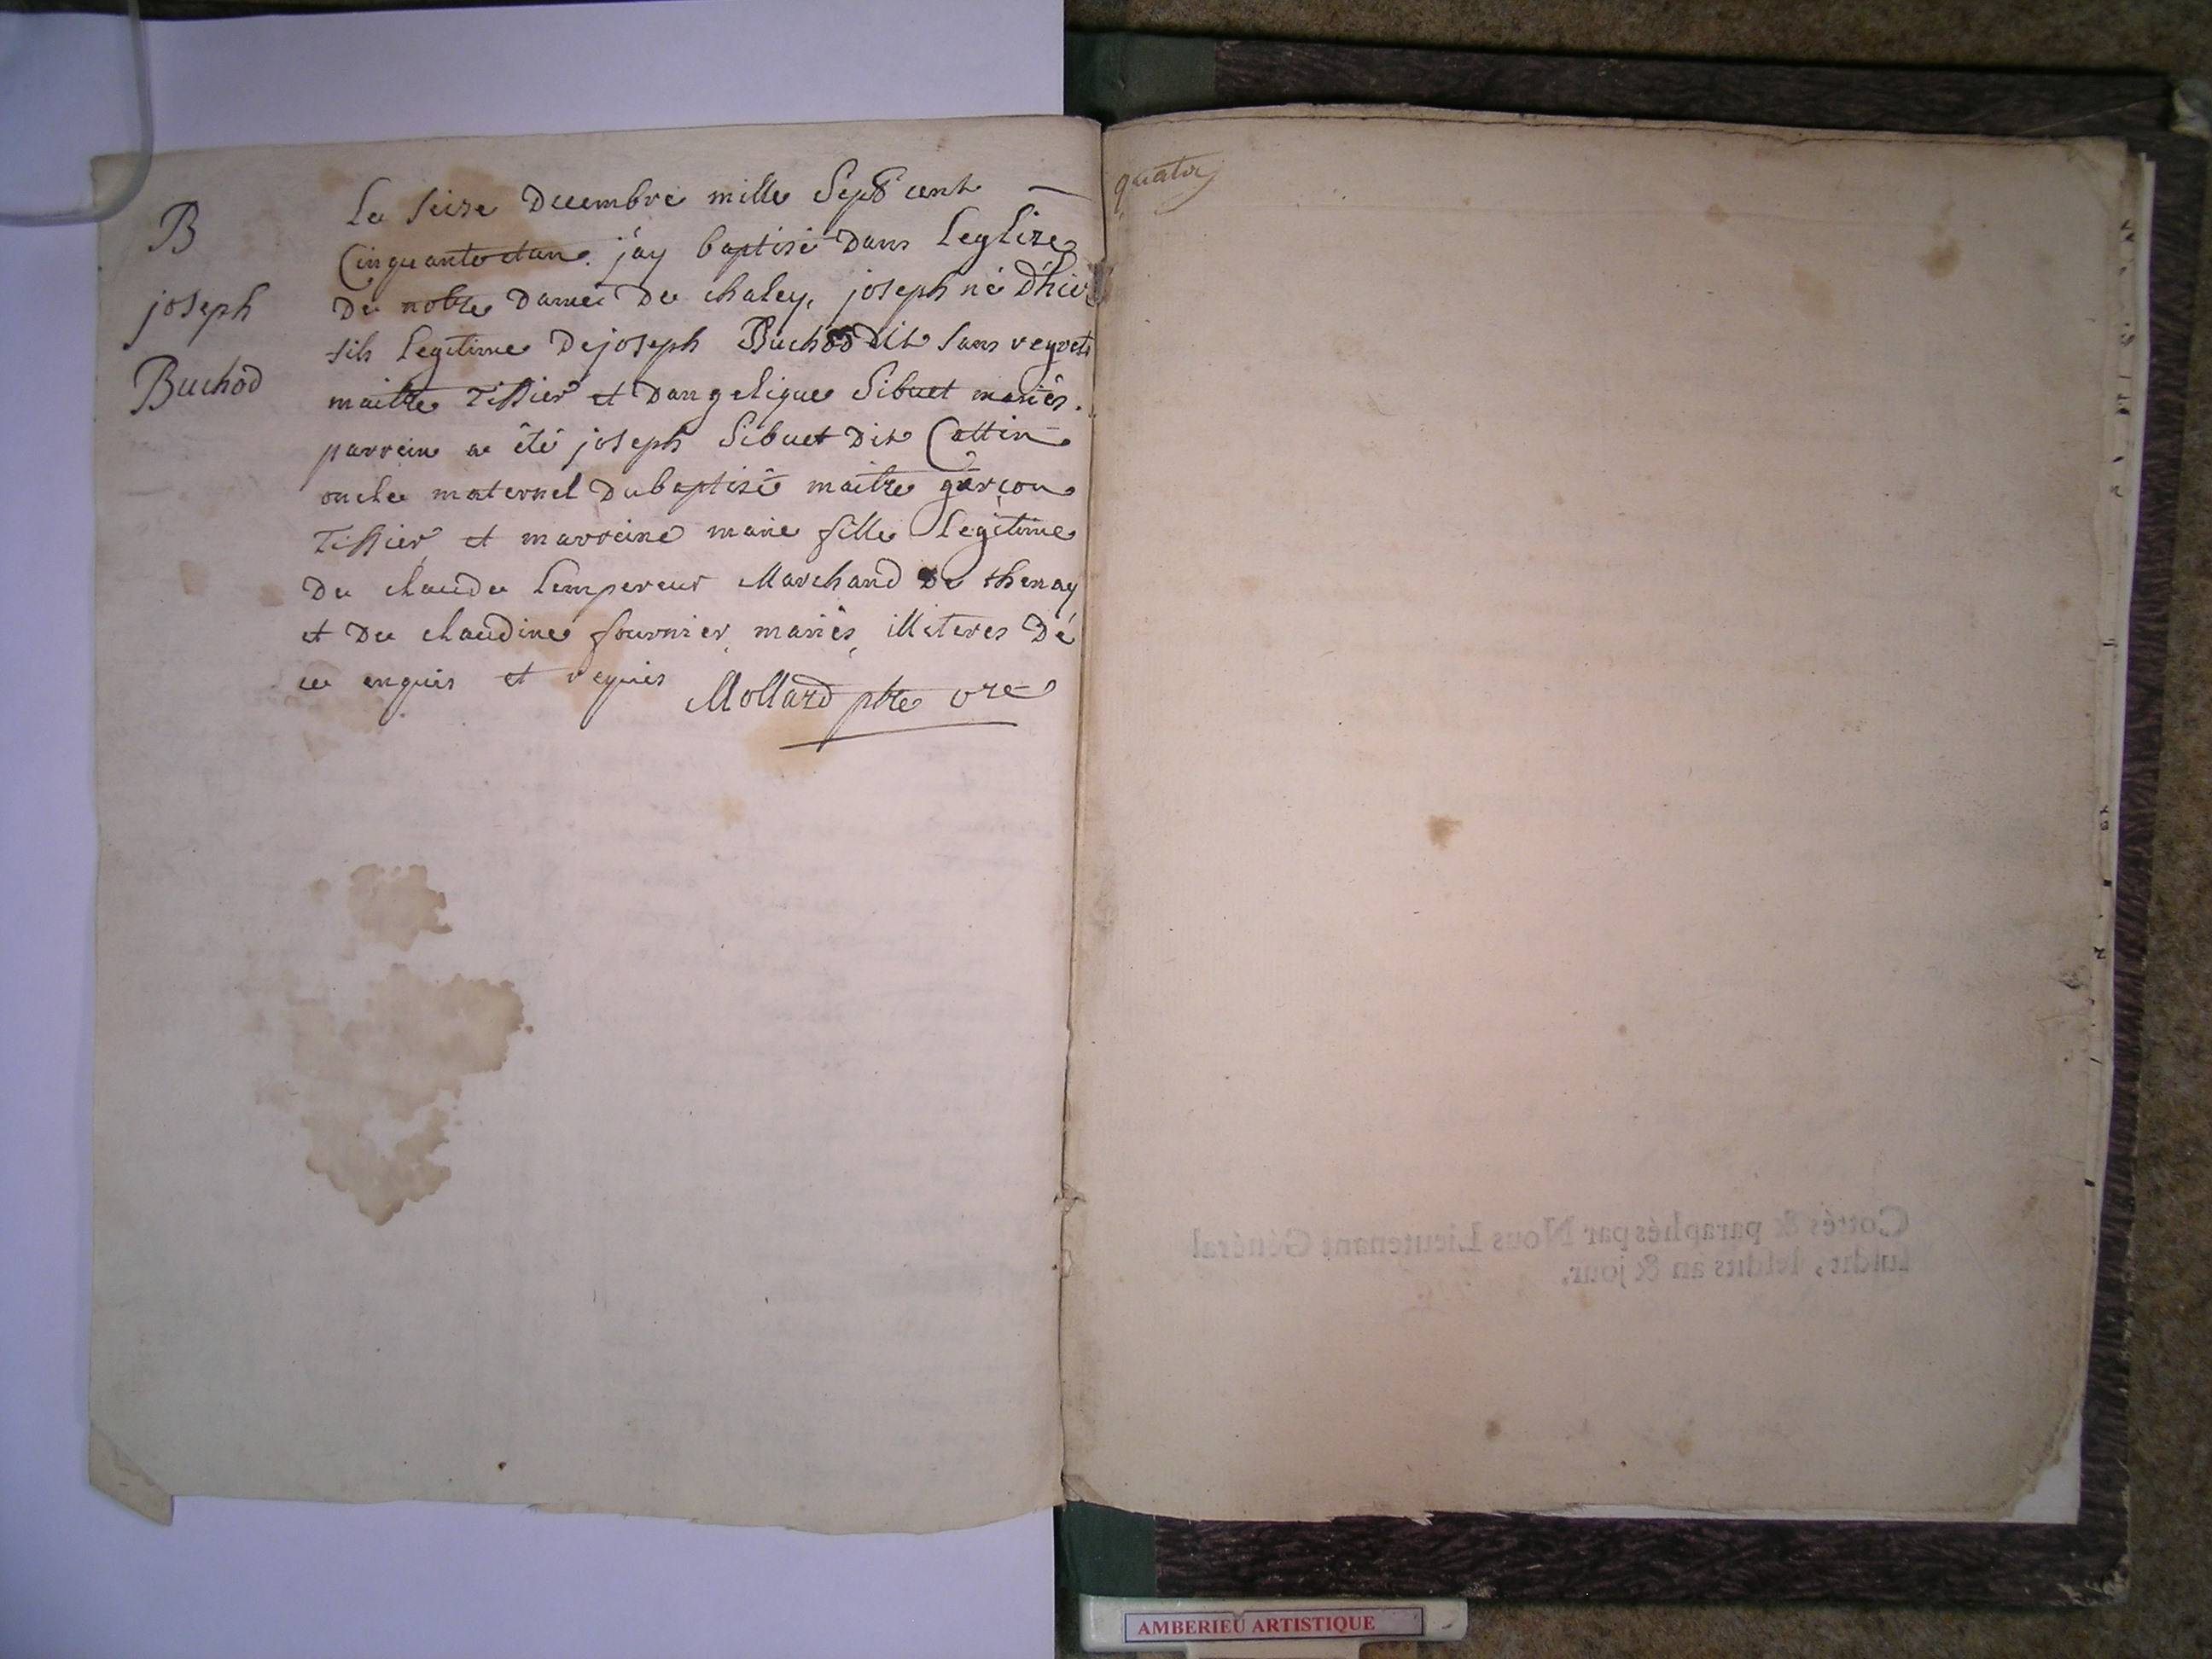 B
joseph
Buchod
Le seize Decembre mille Sept cent
Cinquante et un. j'ay baptisé dans L'eglize
De notre Dame De chaley, joseph né D'hier
fils Legitime De joseph Buchod dit sans regrets
maitre Tissier et D'angelique Sibuet mariés.
parrein a été joseph Sibuet Dit Cattin
oncle maternel Du baptisé maitre garçon
Tissier et marreine marie fille Legitime
De claude Lempereur Marchand De thenay
et De claudine fournier, mariés, illiteres De
ce enquis et requis
Mollard ptre vre
quatre
Cottés & paraphés par Nous Lieutenant Général
susdit, lesdits an & jour.
AMBERIEU ARTISTIQUE